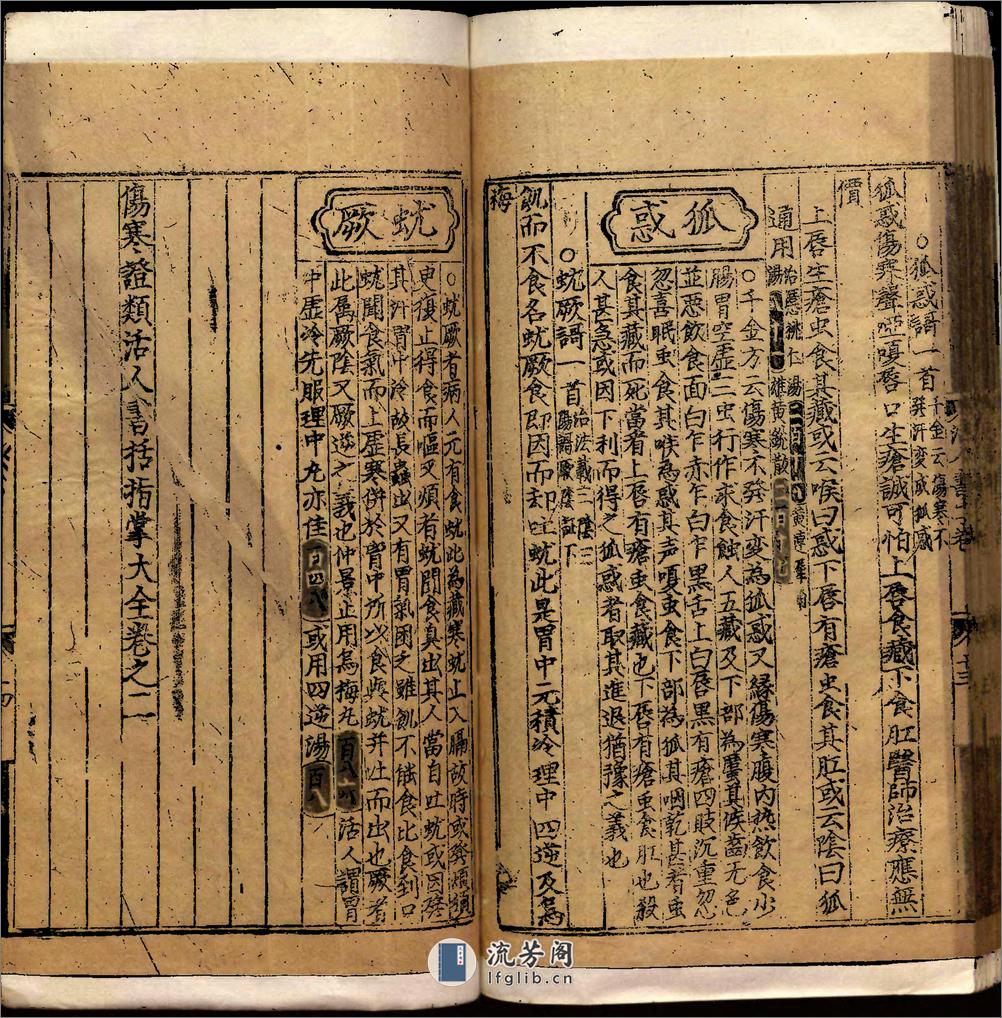 ○狐惑謌一首千金云傷寒不
發汗变成狐惑
狐惑傷寒聲啞嗄唇口生瘡誠可怕上唇食藏下食肛醫師治療應無
價
上唇生瘡虫食其藏或云喉曰惑下唇有瘡虫食其肛或云陰曰狐
通用治䘌桃仁湯
雄黄散
狐惑
○千金方云傷寒不發汗变為狐惑又縁傷寒腹内热飲食少
腸胃空虚三虫行作求食蝕人五藏及下部為䘌其候齒无色
並惡飲食面白乍赤乍白乍黑舌上白唇黑有瘡四肢沉重忽
忽喜眠虫食其喉為惑其声嗄虫食下部為狐其咽乾甚者虫
食其藏而死當看上唇有瘡虫食藏也下唇有瘡虫食肛也殺
人甚急或因下利而得之狐惑者取其進退猶豫之義也
○蚘厥謌一首
飢而不食名蚘厥食即因而却吐蚘此是胃中元積冷理中四逆及烏
梅
蚘厥
○蚘厥者病人元有食蚘此為藏寒蚘上入膈故時或發煩須
臾復止得食而嘔又煩者蚘聞食臭出其人當自吐蚘或因發
其汗胃中冷故長蟲出又有胃氣困乏雖飢不能食比食到口
蚘聞食氣而上虚寒併於胃中所以食與蚘并吐而出也厥者
此属厥陰又厥逆之義也仲景止用烏梅丸百八 活人謂胃
中虚冷先服理中丸亦佳百四八或用四逆湯百八
傷寒證類活人書括指掌大全卷之二
流芳阁
lfglib.cn